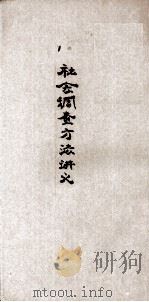 社会调查方法讲义
研狗
mtoou.info